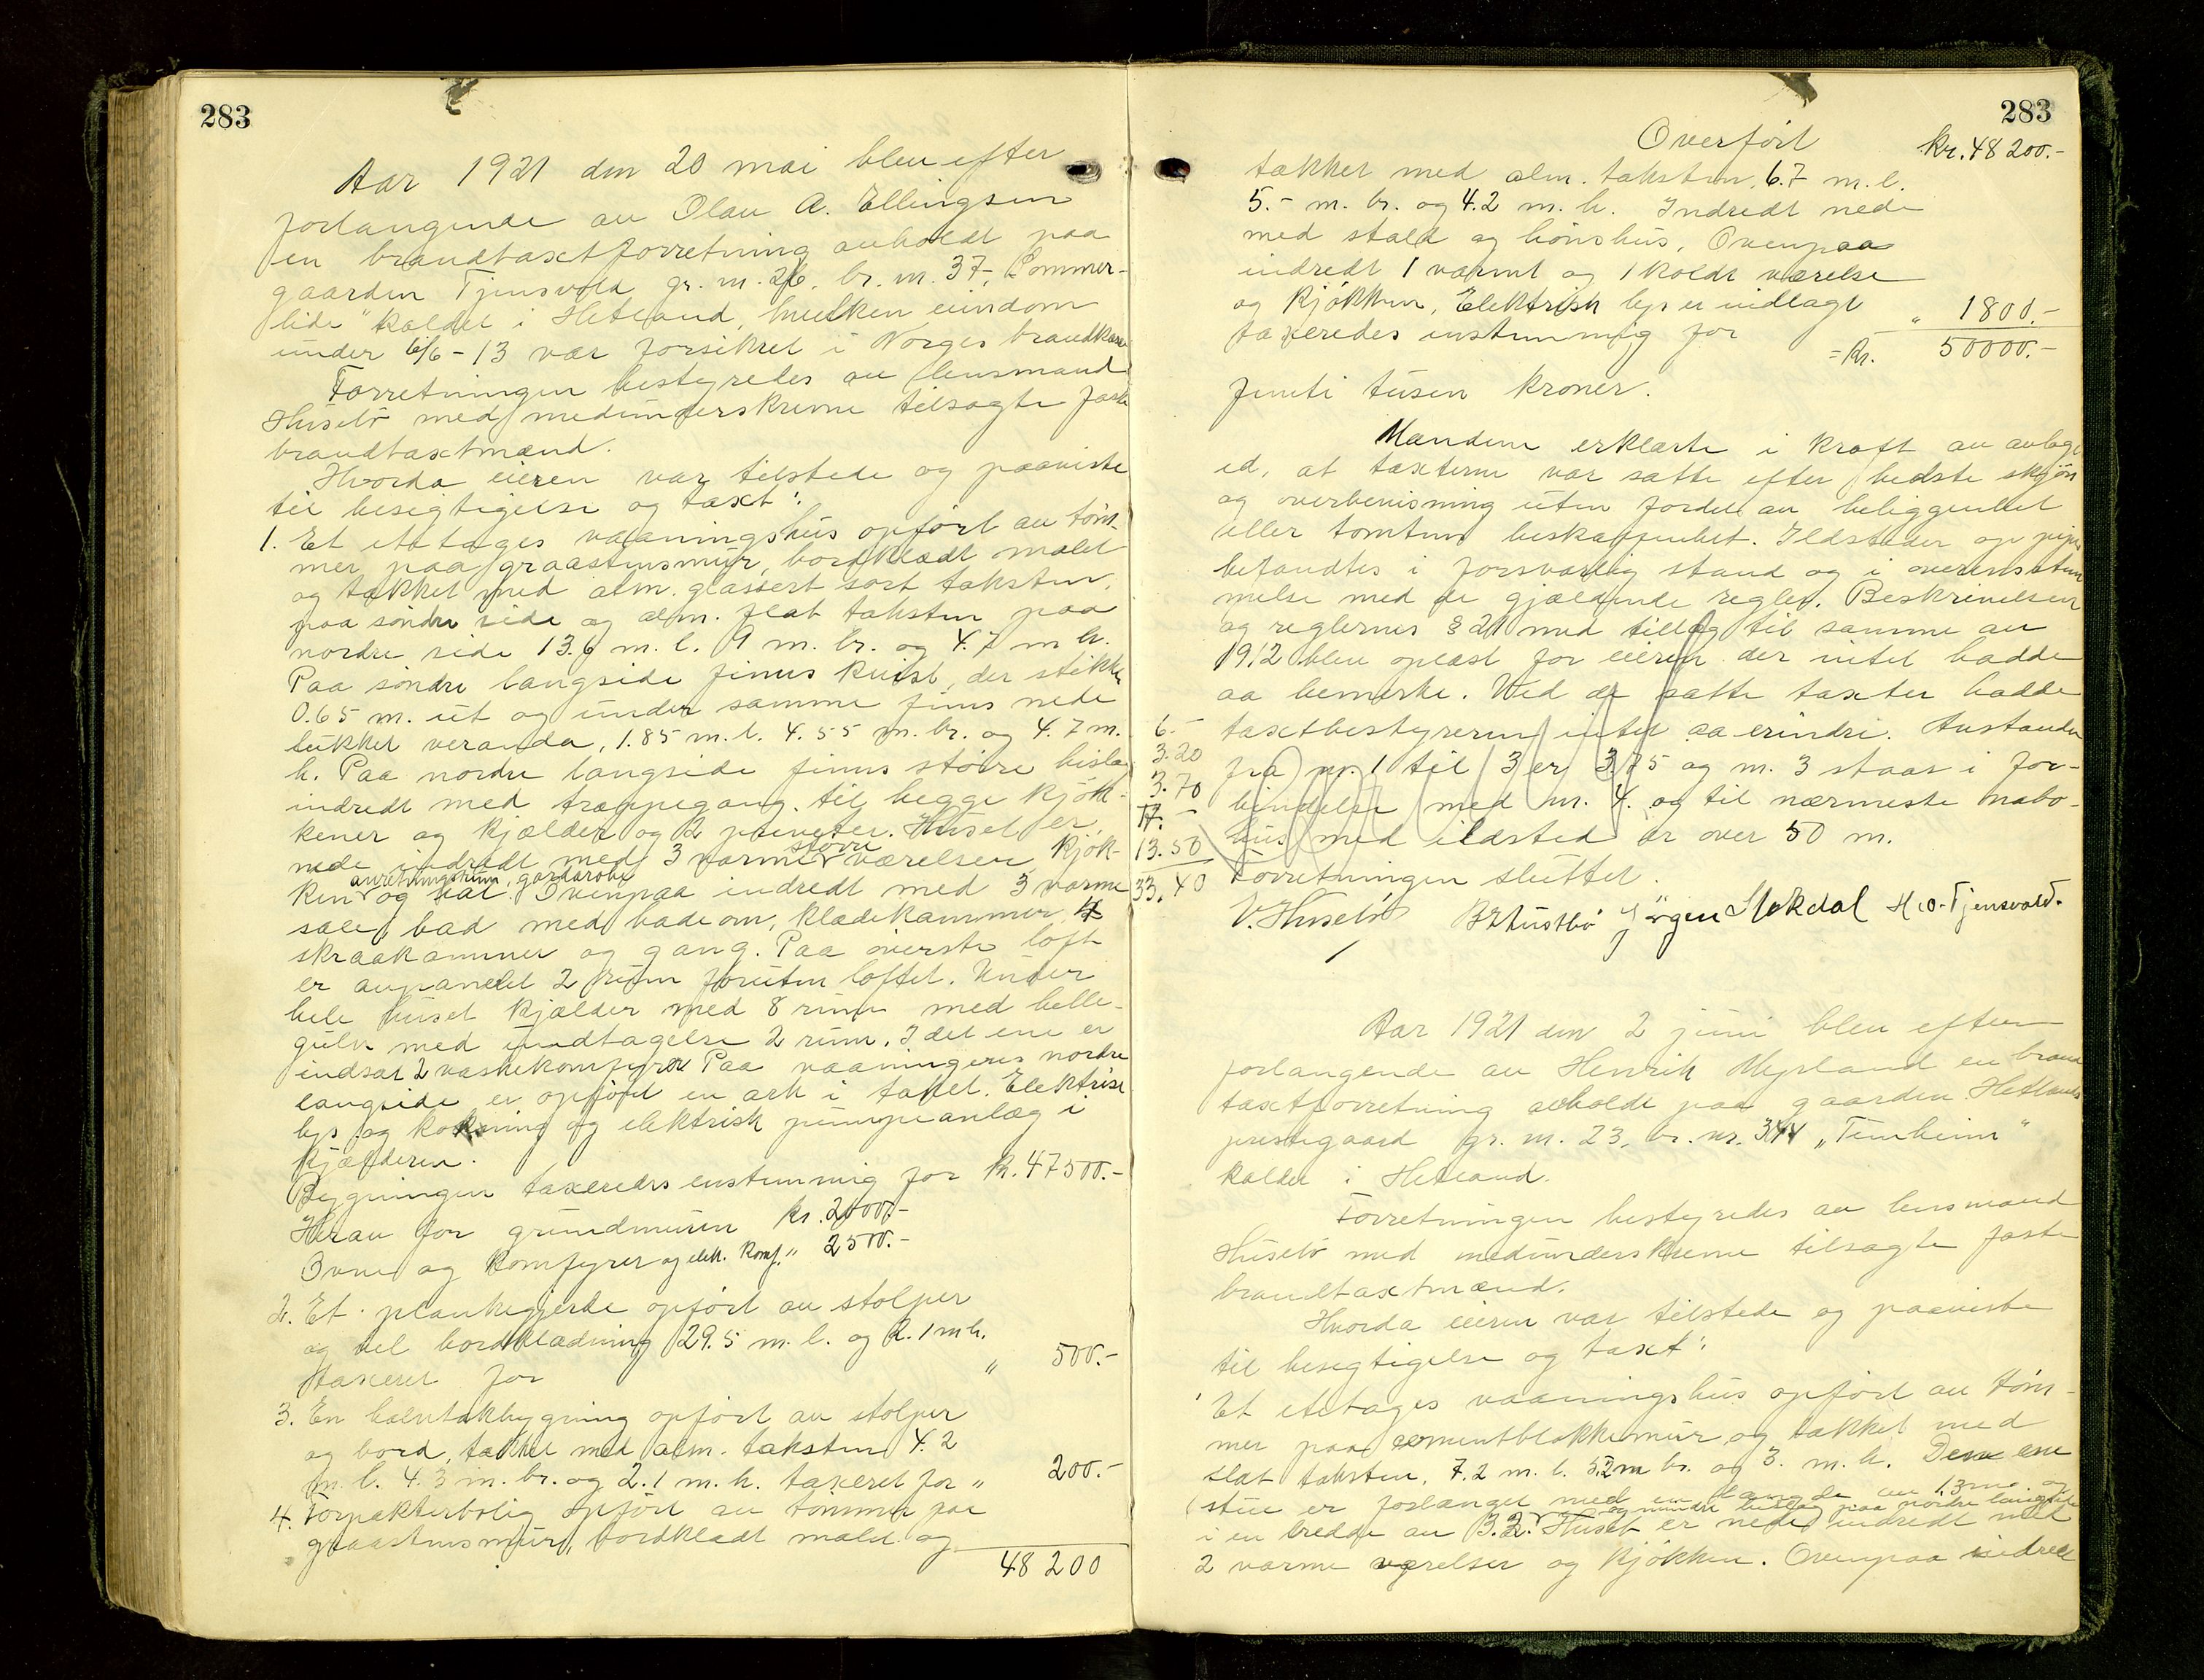 283
Aar 1921 den 20 mai blev efter
forlangende av Olav A. Ellingsen
en brandtaxtforretning avholdt paa
gaarden Tjensvold gr. nr. 26, br. nr. 37, "Sommer-
lide" kaldet i Hetland, hvilken eiendom
under 6/6-13 var forsikret i Norges brandkasse
Forretningen bestyredes av lensmand
Husebø med medunderskrevne tilsagte faste
brandtaxtmænd.
Hvorda eieren var tilstede og paaviste
til besigtigelse og taxt:
1. Et etetages vaaningshus opført av tøm-
mer paa graastensmur, bordklædt malet
og tækket med alm. glassert sort taksten
paa søndre side og alm. flat taksten paa
nordre side 13.6 m. l. 9 m. br. og 4.7 m h.
Paa søndre langside findes kvist, der stikker
0.65 m. ut og under samme fins nede
lukket veranda, 1.85 m. l. 4.55 m. br. og 4.7 m.
h. Paa nordre langside finnes større bislag
indredt med trappegang til begge kjøk-
kener og kjælder og 2 priveter. Huset er
nede indredt med 3 varme større værelser, kjøk-
ken anretningsrum, garderobe og hal. Ovenpaa indredt med 3 varme
sale, bad med badeovn, klædekammer, 4
skraakammer og gang. Paa øverste loft
er avpanelet 2 rum foruten loftet. Under
hele huset kjælder med 8 rum med helle-
gulv med undtagelse 2 rum. I det ene er
indsat 2 vaskekomfyrer Paa vaaningens nordre
langside er opført en ark i taket. Elektrisk
lys og kokning og elektrisk pumpeanlæg i
kjælderen.
Bygningen taxeredes enstemmig for kr. 47500.-
Herav for grundmuren kr. 2000.-
Ovne og komfyrer og elek. komf. " 2500.-
2. Et plankegjerde opført av stolper
og hel bordklædning 29.5 m. l. og 2.1 m h.
taxeret for " 500.-
3. En halvtakbygning opført av stolper
og bord, tækket med alm. taksten 4.2
m. l. 4.3 m. br. og 2.1 m. h. taxeret for " 200.-
4. Forpakterbolig opført av tømmer paa
graastensmur, bordklædt malet og
48 200
283
Overført kr. 48 200.-
tækket med alm. taksten, 6.7 m. l.
5.- m. br. og 4.2 m. h. Indredt nede
med stald og hønshus. Ovenpaa
indredt 1 varmt og 1 koldt værelse
og kjøkken, Elektrisk lys er indlagt
taxeredes enstemmig for " 1800.-
= Kr. 50000.-
femti tusen kroner.
Mændene erklærte i kraft av avlagt
ed, at taxterne var satte efter bedste skjøn
og overbevisning uten fordel av beliggenhet
eller tomtens beskaffenhet. Ildsteder og piper
befandtes i forsvarlig stand og i overensstem
melse med de gjældende regler. Beskrivelsen
og reglernes § 21 med tillæg til samme av
1912 blev oplæst for eieren der intet hadde
aa bemerke. Ved de satte taxter hadde
taxtbestyreren intet aa erindre. Avstanden
fra nr. 1 til 3 er 3.75 og nr. 3 staar i for-
bindelse med nr. 4. og til nærmeste nabo-
hus med ildsted er over 50 m.
Forretningen sluttet.
6.-
3.20
3.70
17.-
13.50
33.40
V. Husebø Jørgen Stokdal H. O. Tjensvold.
Aar 1921 den 2 juni blev efter
forlangende av Henrik Myrland en brand
taxtforretning avholdt paa gaarden Hetlands
prestegaard gr. nr. 23, br. nr. 344 "Temheim"
kaldet i Hetland.
Forretningen bestyredes av lensmand
Husebø med medunderskrevne tilsagte faste
brandtaxtmænd.
Hvorda eieren var tilstede og paaviste
til besigtigelse og taxt:
1 Et etetages vaaningshus opført av tøm-
mer paa cementblokkemur og tækket med
flat taksten, 7.2 m. l. 5.2 m br. og 3. m. h. Den ene
stue er forlænget med en længde av 1.3 m. og
i en bredde av 3.2. og mindre bislag paa nordre langside Huset er nede indredt med
2 varme værelser og kjøkken. Ovenpaa indredt